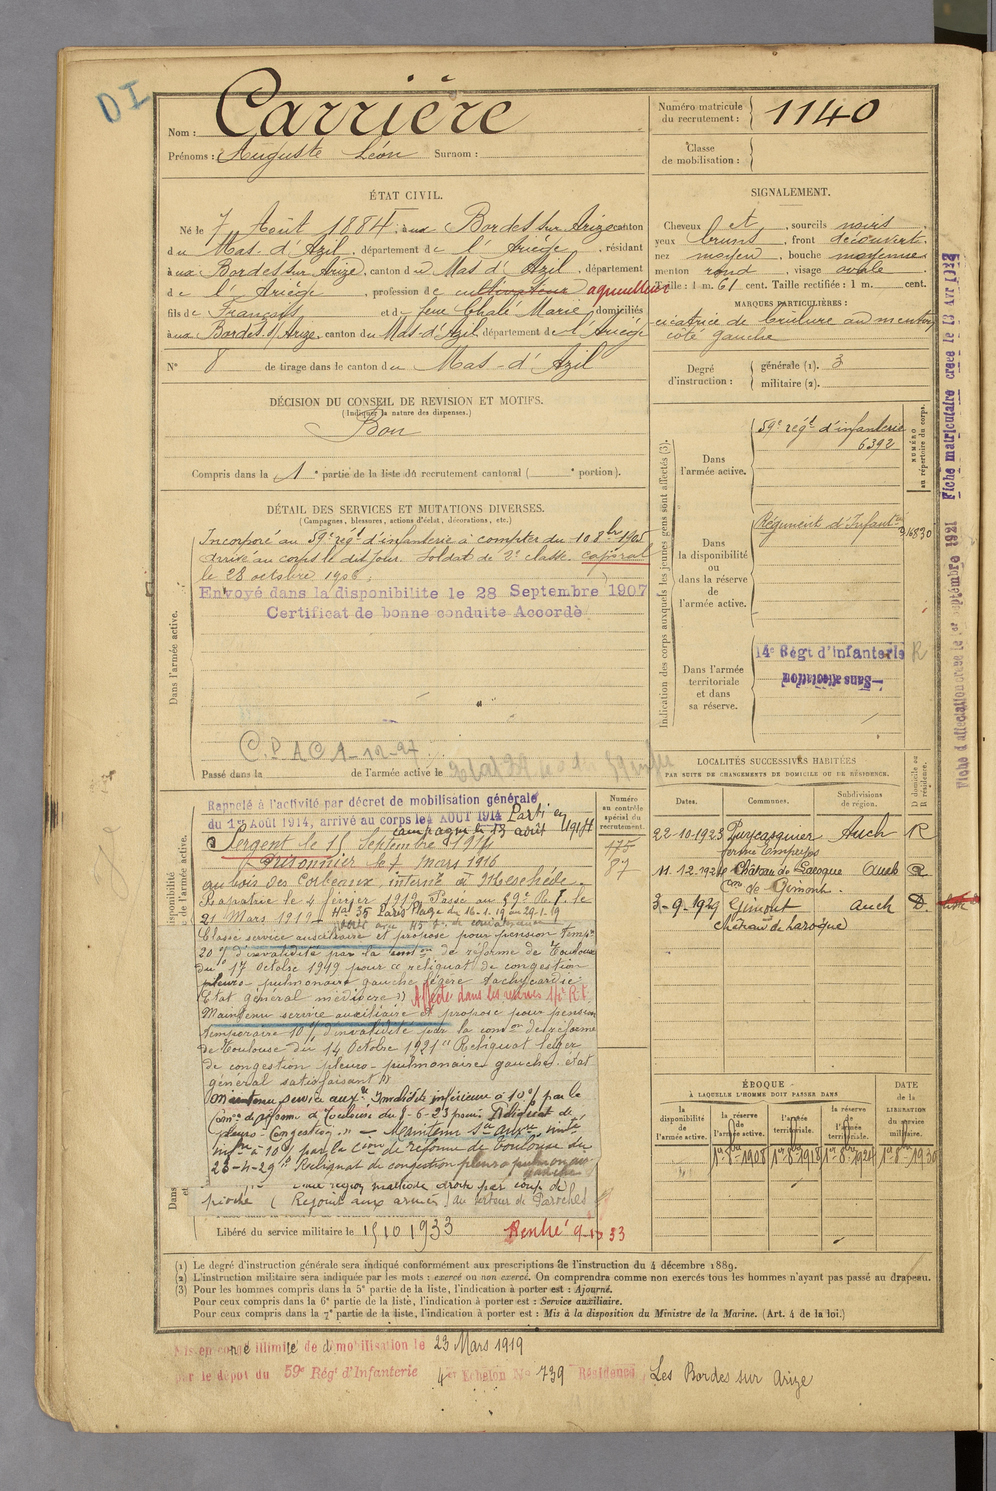 DI
Nom : Carrière
Prénoms : Auguste Léon Surnom :
Numéro matricule du recrutement : 1140
Classe de mobilisation :
ÉTAT CIVIL.
Né le 7 Août 1884, à aux Bordes sur Arize canton
du Mas-d'Azil, département de l'Ariège, résidant
à aux Bordes sur Arize, canton du Mas d'Azil, département
de l'Ariège, profession de cultivateur agriculteur
fils de François et de feue Chalé Marie, domiciliés
à aux Bordes s/ Arize, canton du Mas-d'Azil département de l'Ariège
N° 8 de tirage dans le canton du Mas-d'Azil
SIGNALEMENT.
Cheveux et, sourcils noirs.
yeux bruns, front découvert.
nez moyen, bouche moyenne
menton rond, visage ovale
Taille : 1 m. 61 cent. Taille rectifiée : 1 m. cent.
MARQUES PARTICULIÈRES :
cicatrice de brulure au menton
coté gauche
Degré d'instruction : générale (1). 3
militaire (2).
DÉCISION DU CONSEIL DE REVISION ET MOTIFS.
(Indiquer la nature des dispenses.)
Bon
Compris dans la 1e partie de la liste du recrutement cantonal ( e portion).
DÉTAIL DES SERVICES ET MUTATIONS DIVERSES.
(Campagnes, blessures, actions d'éclat, décorations, etc.)
Dans l'armée active.
Incorporé au 59e régt d'infanterie à compter du 10 8bre 1905
arrivé au corps le dit jour. Soldat de 2e classe. caporal
le 28 octobre 1906.
Envoyé dans la disponibilite le 28 Septembre 1907
Certificat de bonne conduite Accordé
C.P.A.C.A-12-27
Passé dans la de l'armée active le
Indication des corps auxquels les jeunes gens sont affectés (3).
NUMÉRO au répertoire du corps.
Dans l'armée active.
59e régt d'infanterie
6392
Dans la disponibilité ou dans la réserve de l'armée active.
Régiment d'Infantie
Dans l'armée territoriale et dans sa réserve.
14e Régt d'Infanterie R
Sans affectation
LOCALITÉS SUCCESSIVES HABITÉES
PAR SUITE DE CHANGEMENTS DE DOMICILE OU DE RÉSIDENCE.
Dates. Communes. Subdivisions de région. D domicile ou R résidence.
22-10-1923 Puycasquier Auch R
ferme Empeyos
11.12.1924 Château de Laroque Auch R
Cne de Gimont.
3-9-1929 Gimont Auch D.
Château de Laroque
Numéro au contrôle spécial du recrutement.
175
87
Rappelé à l'activité par décret de mobilisation générale
du 1er Août 1914, arrivé au corps le 4 AOUT 1914 Parti en
campagne le 13 août 1914
Sergent le 15 Septembre 1914
Prisonnier le 7 mars 1916
au bois des Corbeaux, interné à Meschede.
Rapatrié le 4 février 1919 Passé au 59e R.I. le
21 Mars 1919
Classé service auxiliaire et proposé pour pension temre
20 % d'invalidité par la de réforme de Toulouse
du 17 Octobre 1919 pour " reliquat de congestion
pleuro-pulmonaire gauche légère tachycardie
(Etat général médiocre) " Affecté dans les réserves 14e R.I.
Maintenu service auxiliaire et proposé pour pension
temporaire 10 % d'invalidité par la comon de réforme
de Toulouse du 14 Octobre 1921 " Reliquat léger
de congestion pleuro-pulmonaire gauche. état
général satisfaisant "
Maintenu service auxre Invalidité inférieure à 10 % par la
Comon de réforme de Toulouse du 8-6-23 pour Reliquat de
pleuro-Congestion. " - Maintenu Sce auxre invté
infre à 10 % par la Cion de réforme de Toulouse du
23-4-29 " Reliquat de congestion pleuro pulmonaire
gauche
région mastoïde droite par coup de
pioche
Libéré du service militaire le 15 10 1933
Renké 9-10 33
ÉPOQUE
À LAQUELLE L'HOMME DOIT PASSER DANS
la disponibilité de l'armée active. la réserve de l'armée active. l'armée territoriale. la réserve de l'armée territoriale.
DATE de la LIBÉRATION du service militaire.
1er 8bre 1908 1er 8bre 1918 1er 8bre 1924 1er 8bre 1930
(1) Le degré d'instruction générale sera indiqué conformément aux prescriptions de l'instruction du 4 décembre 1889.
(2) L'instruction militaire sera indiquée par les mots : exercé ou non exercé. On comprendra comme non exercés tous les hommes n'ayant pas passé au drapeau.
(3) Pour les hommes compris dans la 5e partie de la liste, l'indication à porter est : Ajourné.
Pour ceux compris dans la 6e partie de la liste, l'indication à porter est : Service auxiliaire.
Pour ceux compris dans la 7e partie de la liste, l'indication à porter est : Mis à la disposition du Ministre de la Marine. (Art. 4 de la loi.)
Mis en congé illimité de démobilisation le 23 Mars 1919
par le dépôt du 59e Régt d'Infanterie 4me Echelon No 739 Résidence Les Bordes sur Arize
Fiche d'affectation créée le 1er septembre 1921 Fiche matriculaire créée le 13 Avr 1932